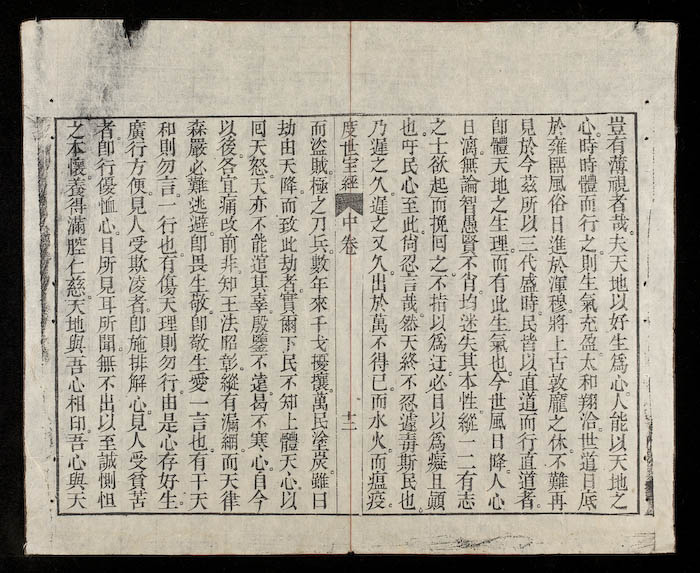 豈有薄視者哉。夫天地以好生爲心。人能以天地之
心。時時體而行之。則生氣充盈。太和翔洽。世道日底
於雍熙。風俗日進於渾穆。將上古敦龐之休。不難再
見於今茲。所以三代盛時。民皆以直道而行。直道者。
卽體天地之生理。而有此生氣也。今世風日降。人心
日漓。無論智愚賢不肖。均迷失其本性。縱一二有志
之士。欲起而挽回之。不指以爲迂。必目以爲癡且顚
也。吁。民心至此。尙忍言哉。然天終不忍遽毒斯民也。
乃遲之久。遲之又久。出於萬不得已。而水火。而瘟疫。
度世宝經 中卷 十二
而盜賊。極之刀兵。數年來干戈擾攘。萬民塗炭。雖曰
劫由天降。而致此劫者。實爾下民。不知上體天心。以
囘天怒。天亦不能逭其辜。殷鑒不遠。曷不寒心。自今
以後。各宜痛改前非。知王法昭彰。縱有漏網。而天律
森嚴。必難逃避。卽畏生敬。卽敬生愛。一言也。有干天
和則勿言。一行也。有傷天理則勿行。由是心存好生。
廣行方便。見人受欺凌者。卽施排解心。見人受貧苦
者。卽行優恤心。目所見。耳所聞。無不出以至誠惻怛
之本懷。養得滿腔仁慈。天地與吾心相印。吾心與天